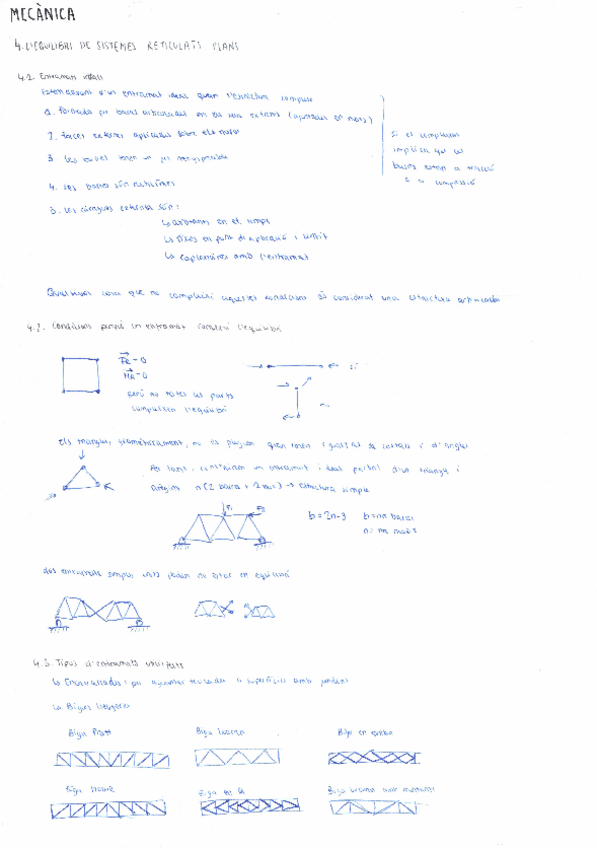 MECÀNICA
4. L'EQUILIBRI DE SISTEMES RETICULATS PLANS
4.1. Entramats ideals
un entramat ideal quan l'estructura compleix
1. Formada per barres articulades en els seus extrems (ajuntades en nusos)
2. Forces externes aplicades sobre els nusos
3. Les barres tenen un pes menyspreable
4. Les barres són rectilínies
5. Les càrregues externes són:
↳ constants en el temps
↳ Fixes en punt d'aplicació i sentit
↳ Coplanàries amb l'entramat
Si es compleixen
implica que les
barres estan a tracció
o a compressió
Qualsevol cosa que no compleixi aquestes condicions és considerat una estructura
4.2. Condicions perquè un entramat l'equilibri
FR = 0
MR = 0
però no totes les parts
compleixen l'equilibri
sí
Els triangles, geomètricament, no es
Per tant, construirem un entramat ideal partint d'un triangle i
afegim n (2 barres + 1 nus) → estructura simple
F1
F2
b = 2n-3
b = nº barres
n = nº nusos
Dos entramats simples units poden no estar en equilibri
4.3. Tipus d'entramats utilitzats
↳ Encavallades: per aguantar teulades o superfícies amb pendent
↳ Bigues
Biga Pratt
Biga Warren
Biga en
Biga Howe
Biga en K
Biga Warren amb muntants